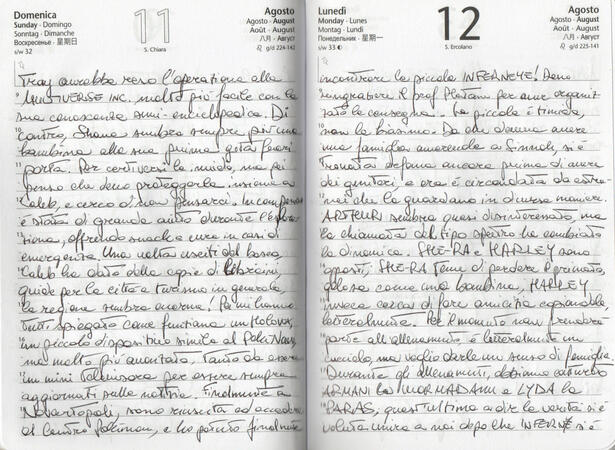 Domenica
Sunday • Domingo
Sonntag • Dimanche
Воскресенье • 星期日
s/w 32
11
S. Chiara
Agosto
Agosto • August
Août • August
八月 • Август
g/d 223-142
Tray avrebbe reso l'operazione alla
MULTIVERSE INC. molto più facile con la
sua conoscenza semi-enciclopedica. Di
contro, Shana sembra sempre più una
bambina alla sua prima gita fuori
porta. Per certi versi la invidio, ma poi
penso che devo proteggerla, insieme a
Caleb, e cerco di non pensarci. In compenso
è stata di grande aiuto durante l'esplora-
zione, offrendo snack e cure in casi di
emergenza. Una volta usciti dal bosco
Caleb ha dato delle copie di libricini,
guide per la città e turismo in generale,
la regione sembra enorme. Poi mi hanno
tutti spiegato come funziona un Holovox,
un piccolo dispositivo simile al PokéNav,
ma molto più avanzato. Tanto da essere
un mini televisore per essere sempre
aggiornati sulle notizie. Finalmente a
Novartopoli, sono riuscita ad accedere
al Centro Pokémon, e ho potuto finalmente
Lunedì
Monday • Lunes
Montag • Lundi
Понедельник • 星期一
s/w 33
12
S. Ercolano
Agosto
Agosto • August
Août • August
八月 • Август
g/d 224-141
incontrare la piccola INFERNE! Devo
ringraziare il prof Platan per aver organiz-
zato la consegna. La piccola è timida,
non la biasimo. Da che doveva avere
una famiglia amorevole a Sinnoh, si è
trovata orfana ancora prima di avere
dei genitori, e ora è circondata da estra-
nei che la guardano in diverse maniere.
ARTHUR sembra quasi disinteressato, ma
la chiamata del tipo spettro ha cambiato
la dinamica. SHE-RA e HARLEY sono
opposti. SHE-RA teme di perdere il primato,
gelosa come una bambina. HARLEY
invece cerca di fare amicizia
letteralmente. Per il momento non prenderà
parte all'allenamento, è letteralmente un
cucciolo, ma voglio darle un senso di famiglia.
Durante gli allenamenti, abbiamo catturato
ARMANI la WORMADAM e LYDA la
PARAS, quest'ultima a dir la verità si è
voluta unire a noi dopo che INFERNE si è